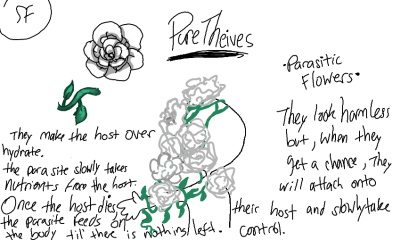 SF
Pure Theives
• Parasitic
Flowers •
They look harmless
but, when they
get a chance, They
will attach onto
their host and slowly take
control.
They make the host over
hydrate.
the parasite slowly takes
nutrients from the host.
Once the host dies
the parasite feeds on
the body til' there is nothing left.